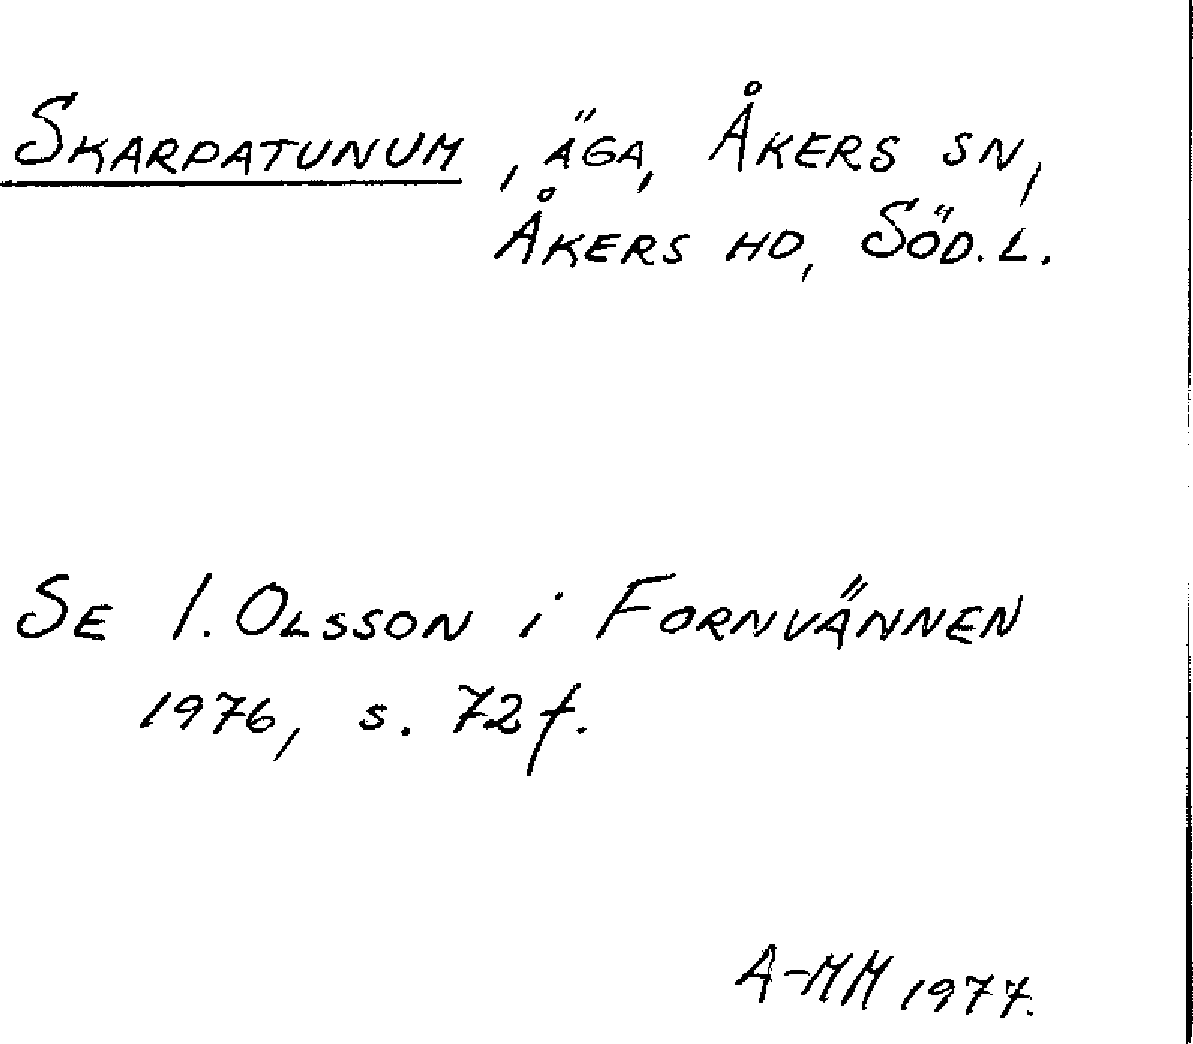 SKARPATUNUM, ÄGA, ÅKERS SN,
ÅKERS HD, SÖD. L.
SE I. OLSSON i FORNVÄNNEN
1976, s. 72 f.
A-MM 1977.